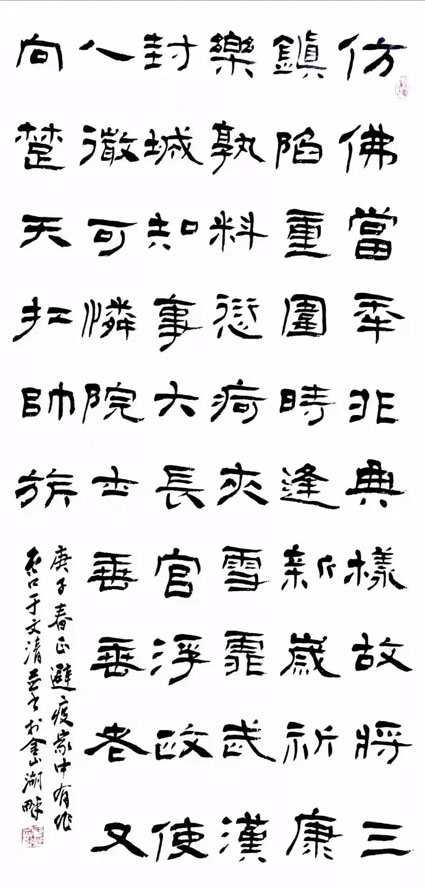 仿佛當年非典樣故將三
鎮陷重圍時逢新歲祈康
樂孰料愆疴夾雪霏武漢
封城知事大長官浮政使
人微可憐院士垂垂老又
向楚天扛帥旂
庚子春正避疫家中有作
京口于文清并書於金山湖畔